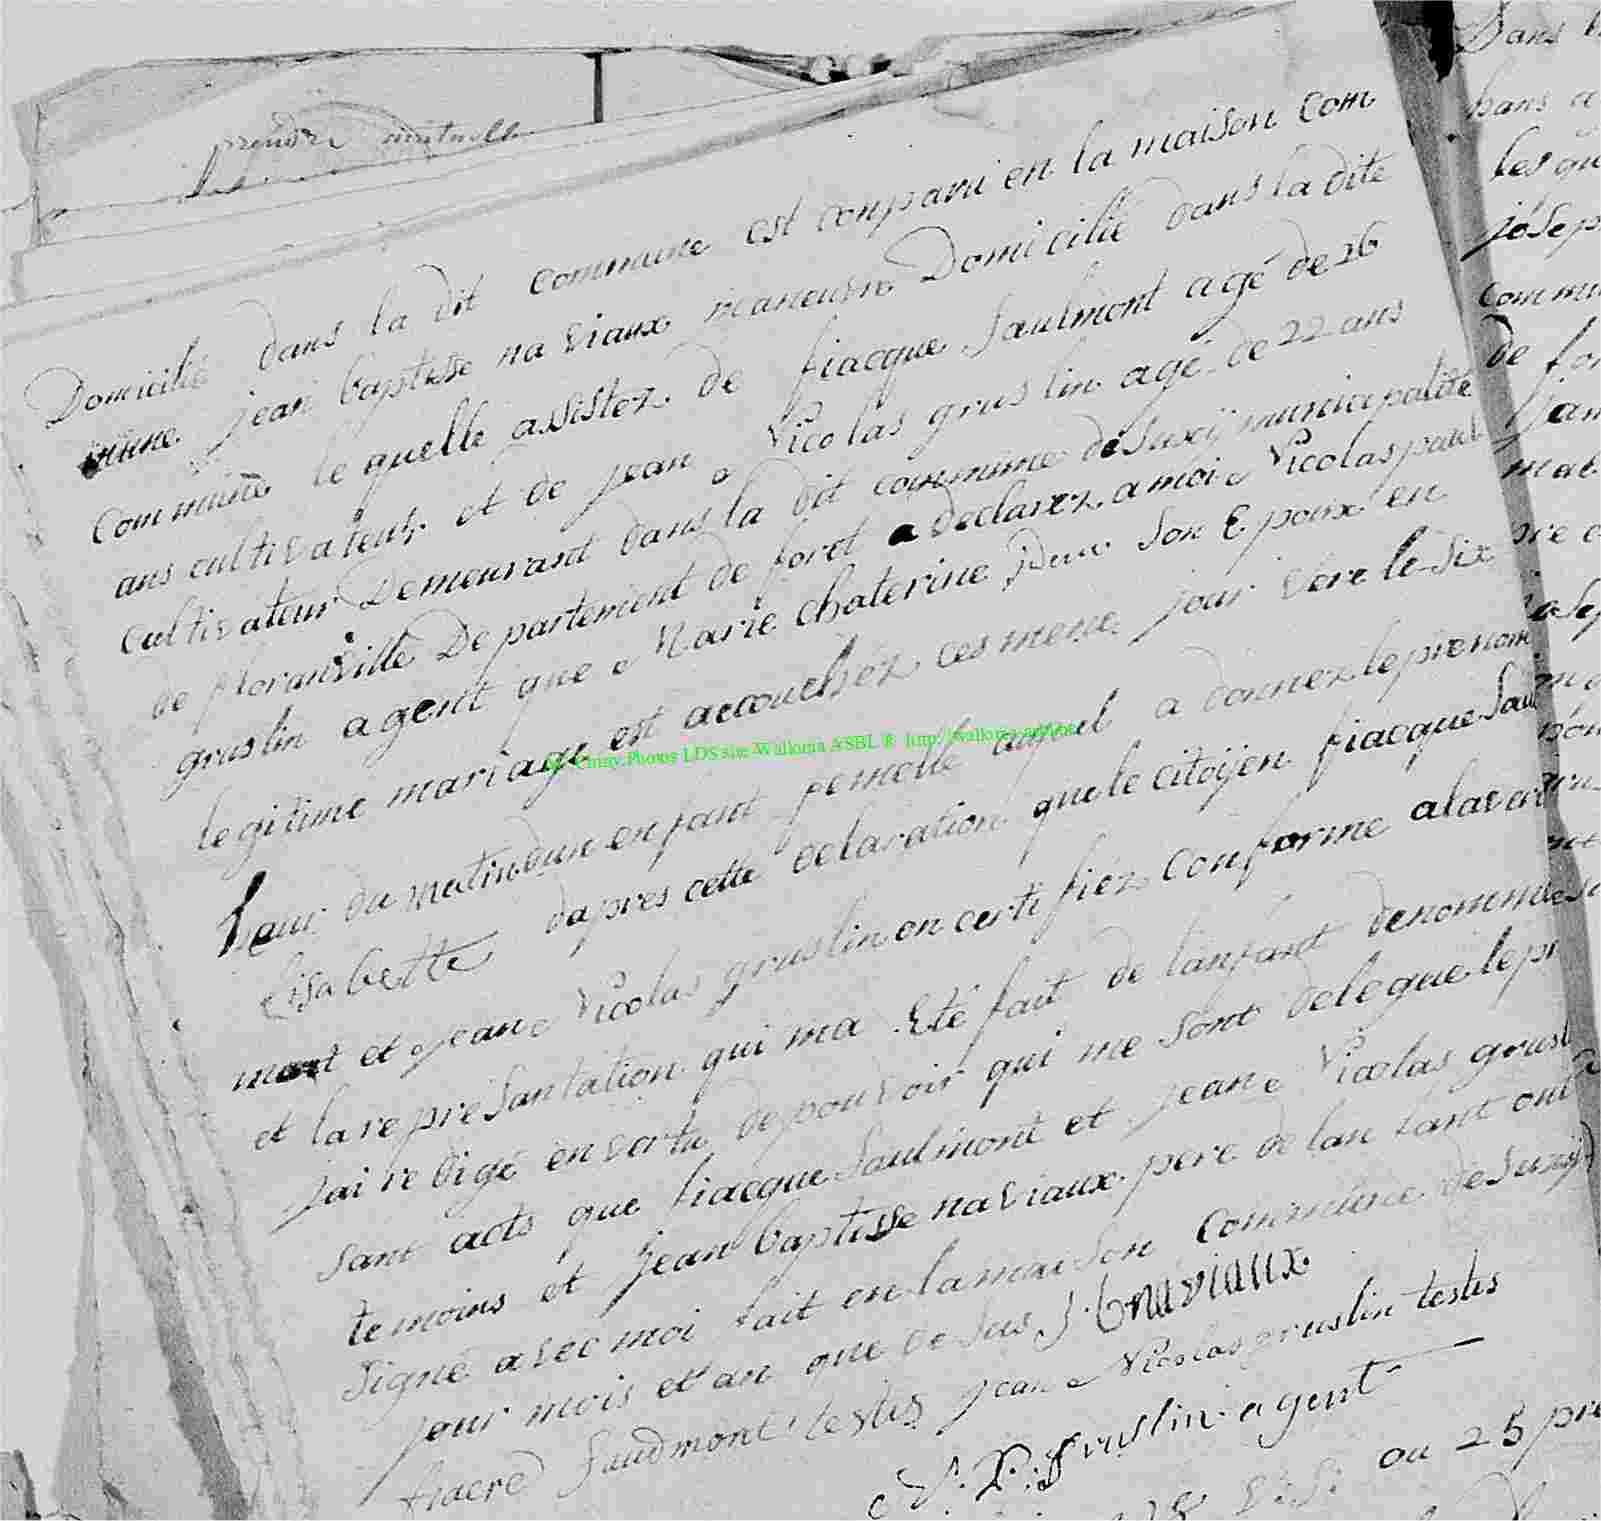 prendre mutuelle
Domicilié dans la dit commune est conparu en la maison com
mune jean baptisse naviaux maneuvre Domicilié dans la dite
commune le quelle assistez de fiacque Saulmont agé de 26
ans cultivateur et de jean Nicolas gruslin agé de 22 ans
cultivateur Demeurant dans la dit commune de Suxÿ municipalité
de floranville Departement de foret a declarez a moi Nicolas paul
gruslin agent que Marie Chaterine son Epoux en
legitime mariage est accouchéz ces meme jour vere le six
heur du matin dun enfant femelle auquel a donnez le prenom
Elisabette dapres cette declaration que le citoÿen fiacque Saul
mont et jean Nicolas gruslin on certifiéz conforme a la veri
et la representation qui ma Eté fait de lanfant denommé
jai redigé en vertu de pouvoir qui me sont delegue le pr
sant acts que fiacque Saulmont et jean Nicolas grusl
temoins et jean baptisse naviaux pere de lan fant ont
Signé avec moi fait en la maison commune de Suxÿ
jour mois et an que de sus J. b naviaux
fiacre Saudmont testis jean Nicolas gruslin testis
N. P. gruslin agent
ou 25 pre
Dans
dans
les qu
josep
commu
de for
mat
Mr Chiny.Photos LDS site Wallonia ASBL ® http://wallonia-asbl.be